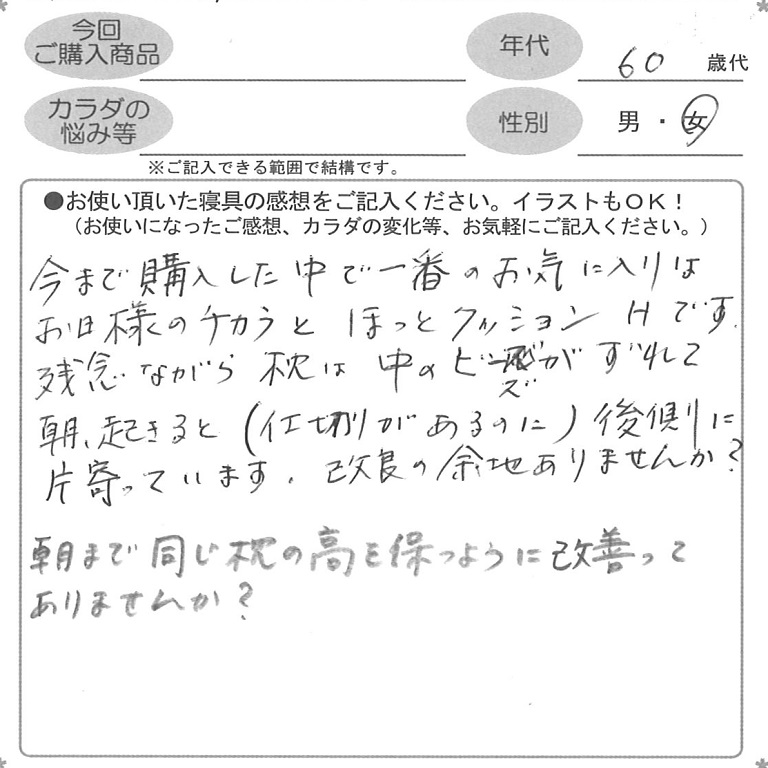 今回
ご購入商品
年代 60 歳代
カラダの
悩み等
性別 男・女
※ご記入できる範囲で結構です。
●お使い頂いた寝具の感想をご記入ください。イラストもOK！
（お使いになったご感想、カラダの変化等、お気軽にご記入ください。）
今まで購入した中で一番のお気に入りは
お日様のチカラと ほっとクッション Hです。
残念ながら 枕は 中のビーズが ずれて
朝、起きると(仕切りがあるのに)後側に
片寄っています。改良の余地ありませんか?
朝まで同じ枕の高を保つように改善って
ありませんか?